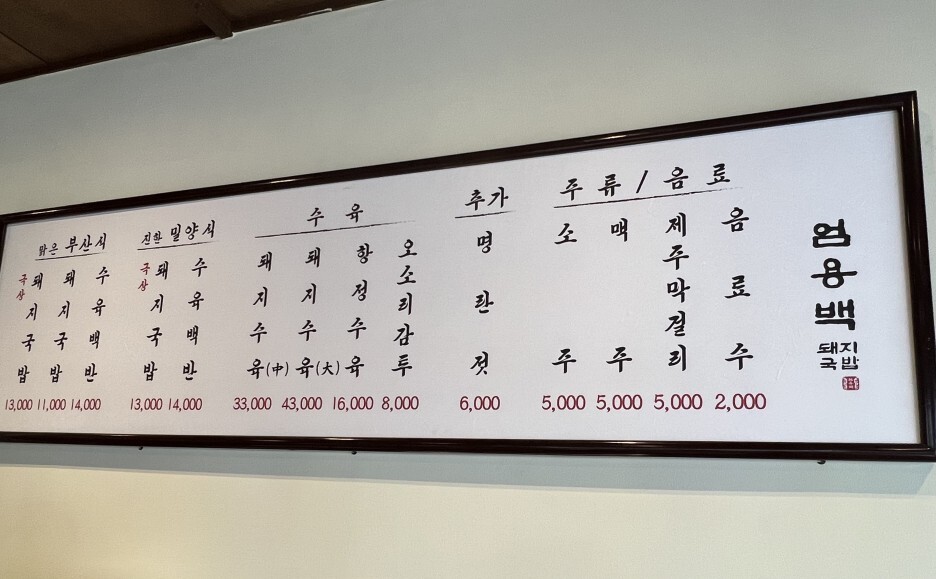 맑은 부산식
극상 돼지국밥 13,000
돼지국밥 11,000
수육백반 14,000
진한 밀양식
극상 돼지국밥 13,000
수육백반 14,000
수육
돼지수육(中) 33,000
돼지수육(大) 43,000
항정수육 16,000
오소리감투 8,000
추가
명란젓 6,000
주류/음료
소주 5,000
맥주 5,000
제주막걸리 5,000
음료수 2,000
엄용백
돼지
국밥